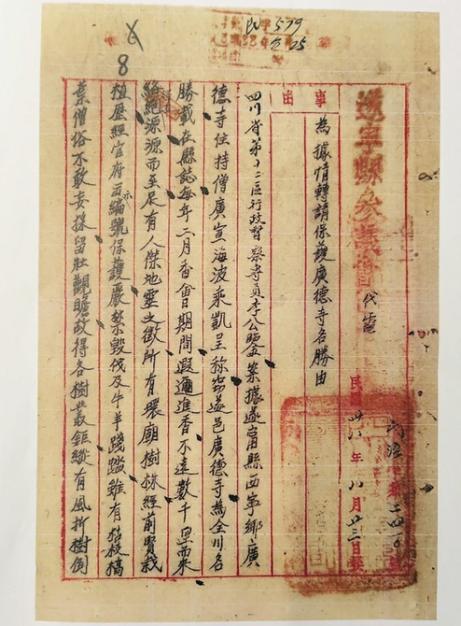 遂寧縣參議會 代電
民國卅八年八月廿三日發
事由
為據情轉請保護廣德寺名勝由
四川省第十二區行政督察專員李公鑒案據遂寧縣西寧鄉廣
德寺住持僧廣宣海波乘凱呈称窃遂邑廣德寺為全川名
勝載在縣誌每年二月香會日期間遐邇進香不遠數千里而來
源源而至 有人傑地靈之徵所有環廟樹林經前賢栽
植歷經官府示編號保護嚴禁毀伐及牛羊踐踏雖有枯枝槁
葉僧俗不敢妄採留壯觀瞻故得各樹叢鉅縱有風折樹倒
8
579